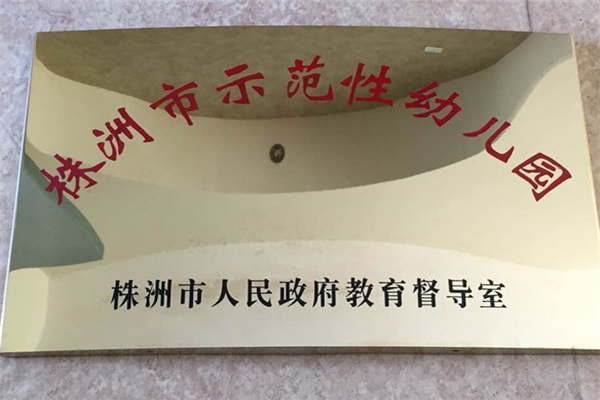 株洲市示范性幼儿园
株洲市人民政府教育督导室